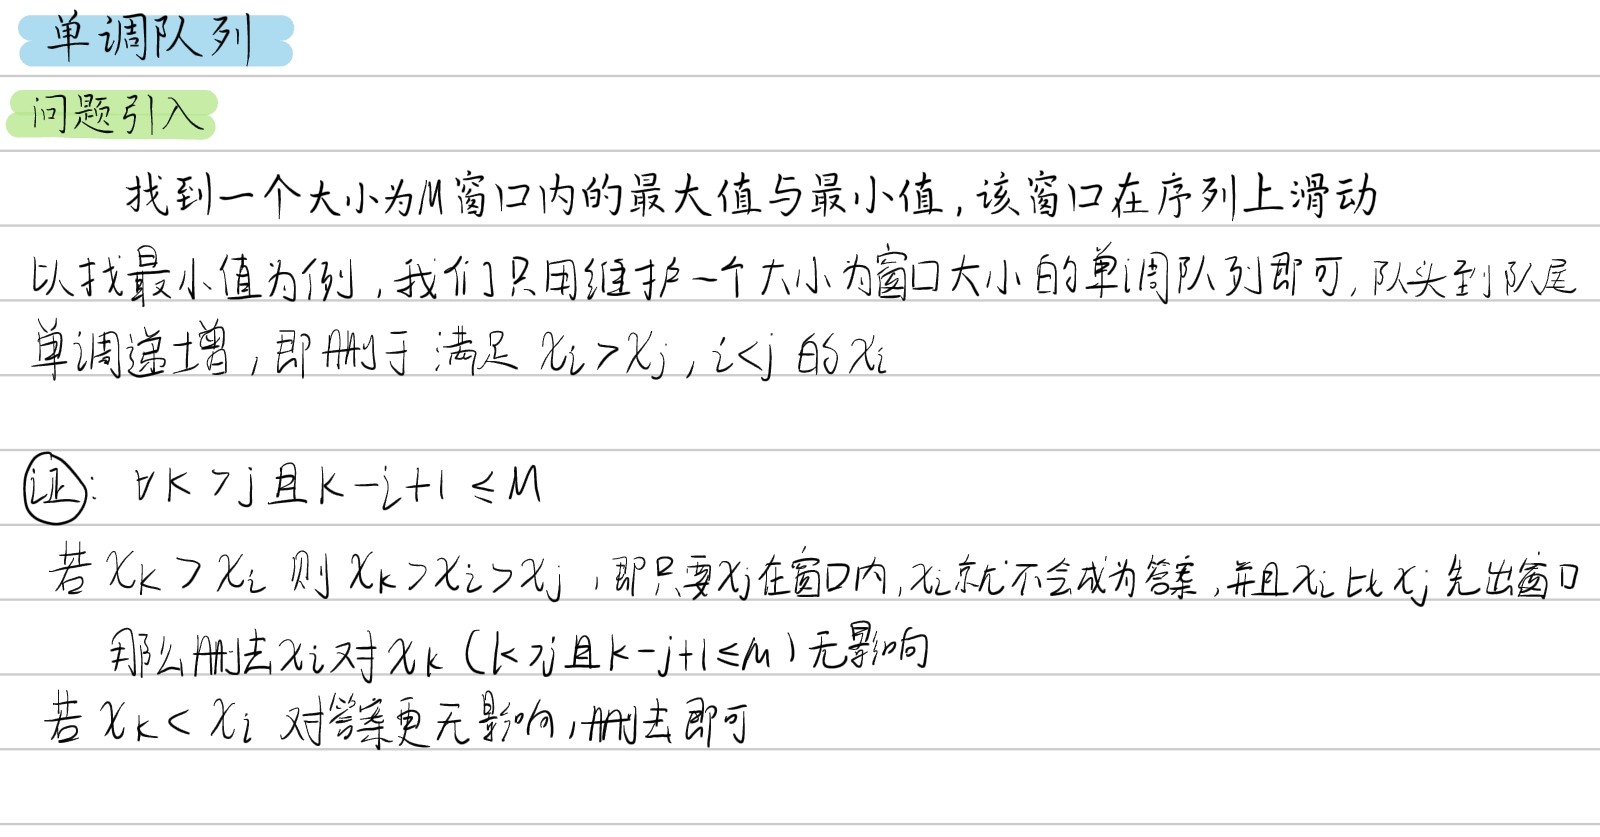 单调队列
问题引入
找到一个大小为M窗口内的最大值与最小值,该窗口在序列上滑动
以找最小值为例,我们只用维护一个大小为窗口大小的单调队列即可,队头到队尾
单调递增,即删于满足 xi>xj,i<j 的xi
证: ∀k>j且k-i+1≤M
若xk>xi 则xk>xi>xj,即只要xj在窗口内,xi就不会成为答案,并且xi比xj先出窗口
那么删去xi对xk(k>j且k-j+1≤M)无影响
若xk<xi 对答案更无影响,删去即可